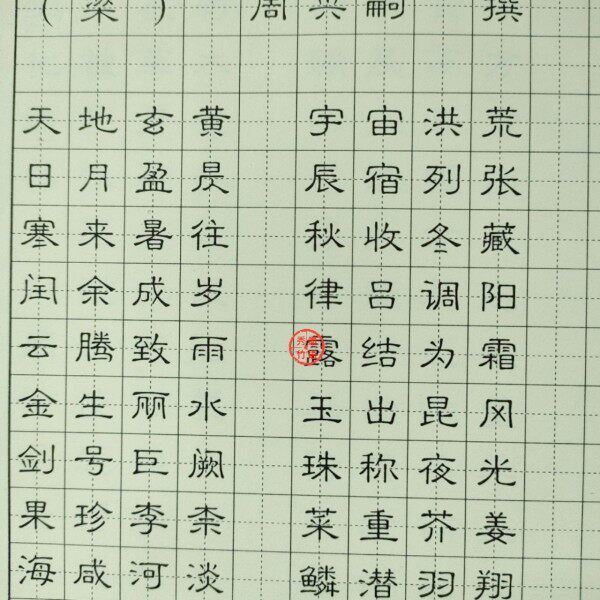 (梁) 周兴嗣 撰
天地玄黄 宇宙洪荒
日月盈昃 辰宿列张
寒来暑往 秋收冬藏
闰余成岁 律吕调阳
云腾致雨 露结为霜
金生丽水 玉出昆冈
剑号巨阙 珠称夜光
果珍李柰 菜重芥姜
海咸河淡 鳞潜羽翔